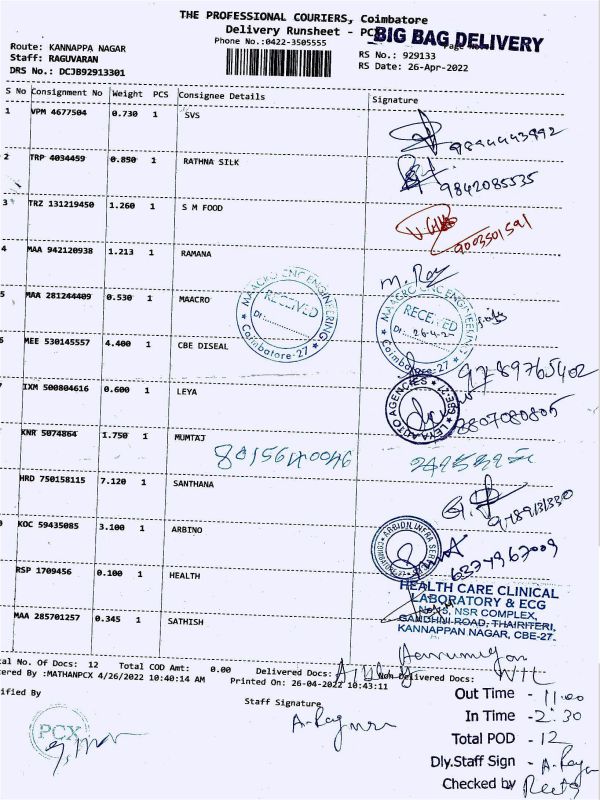 THE PROFESSIONAL COURIERS, Coimbatore
Delivery Runsheet - PCX
BIG BAG DELIVERY
Phone No.:0422-3505555
Route: KANNAPPA NAGAR
Staff: RAGUVARAN
DRS No.: DCJB92913301
RS No.: 929133
RS Date: 26-Apr-2022
S No Consignment No Weight PCS Consignee Details Signature
1 VPM 4677504 0.730 1 SVS
2 TRP 4034459 0.850 1 RATHNA SILK
9842085535
3 TRZ 131219450 1.260 1 S M FOOD
9003501591
4 MAA 942120938 1.213 1 RAMANA
M. Ray
5 MAA 281244409 0.530 1 MAACRO
MAACRO CNC ENGINEERING
RECEIVED
Dt:
Coimbatore-27
MAACRO CNC ENGINEERING
RECEIVED
Dt: 26-4-22
Coimbatore-27
MEE 530145557 4.400 1 CBE DISEAL
9789765402
IXM 500804616 0.600 1 LEYA
LEYA AUTO AGENCIES
CBE-27
8807080805
KNR 5074864 1.750 1 MUMTAJ
8015640046
HRD 750158115 7.120 1 SANTHANA
KOC 59435085 3.100 1 ARBINO
6374967009
RSP 1709456 0.100 1 HEALTH
HEALTH CARE CLINICAL
LABORATORY & ECG
NSR COMPLEX,
GANDHINI ROAD, THAIRITERI,
KANNAPPAN NAGAR, CBE-27.
MAA 285701257 0.345 1 SATHISH
al No. Of Docs: 12 Total COD Amt: 0.00 Delivered Docs: Non Delivered Docs: NIL
ered By :MATHANPCX 4/26/2022 10:40:14 AM Printed On: 26-04-2022 10:43:11
ified By
Staff Signature
PCX
Out Time - 11.00
In Time - 2.30
Total POD - 12
Dly.Staff Sign -
Checked by